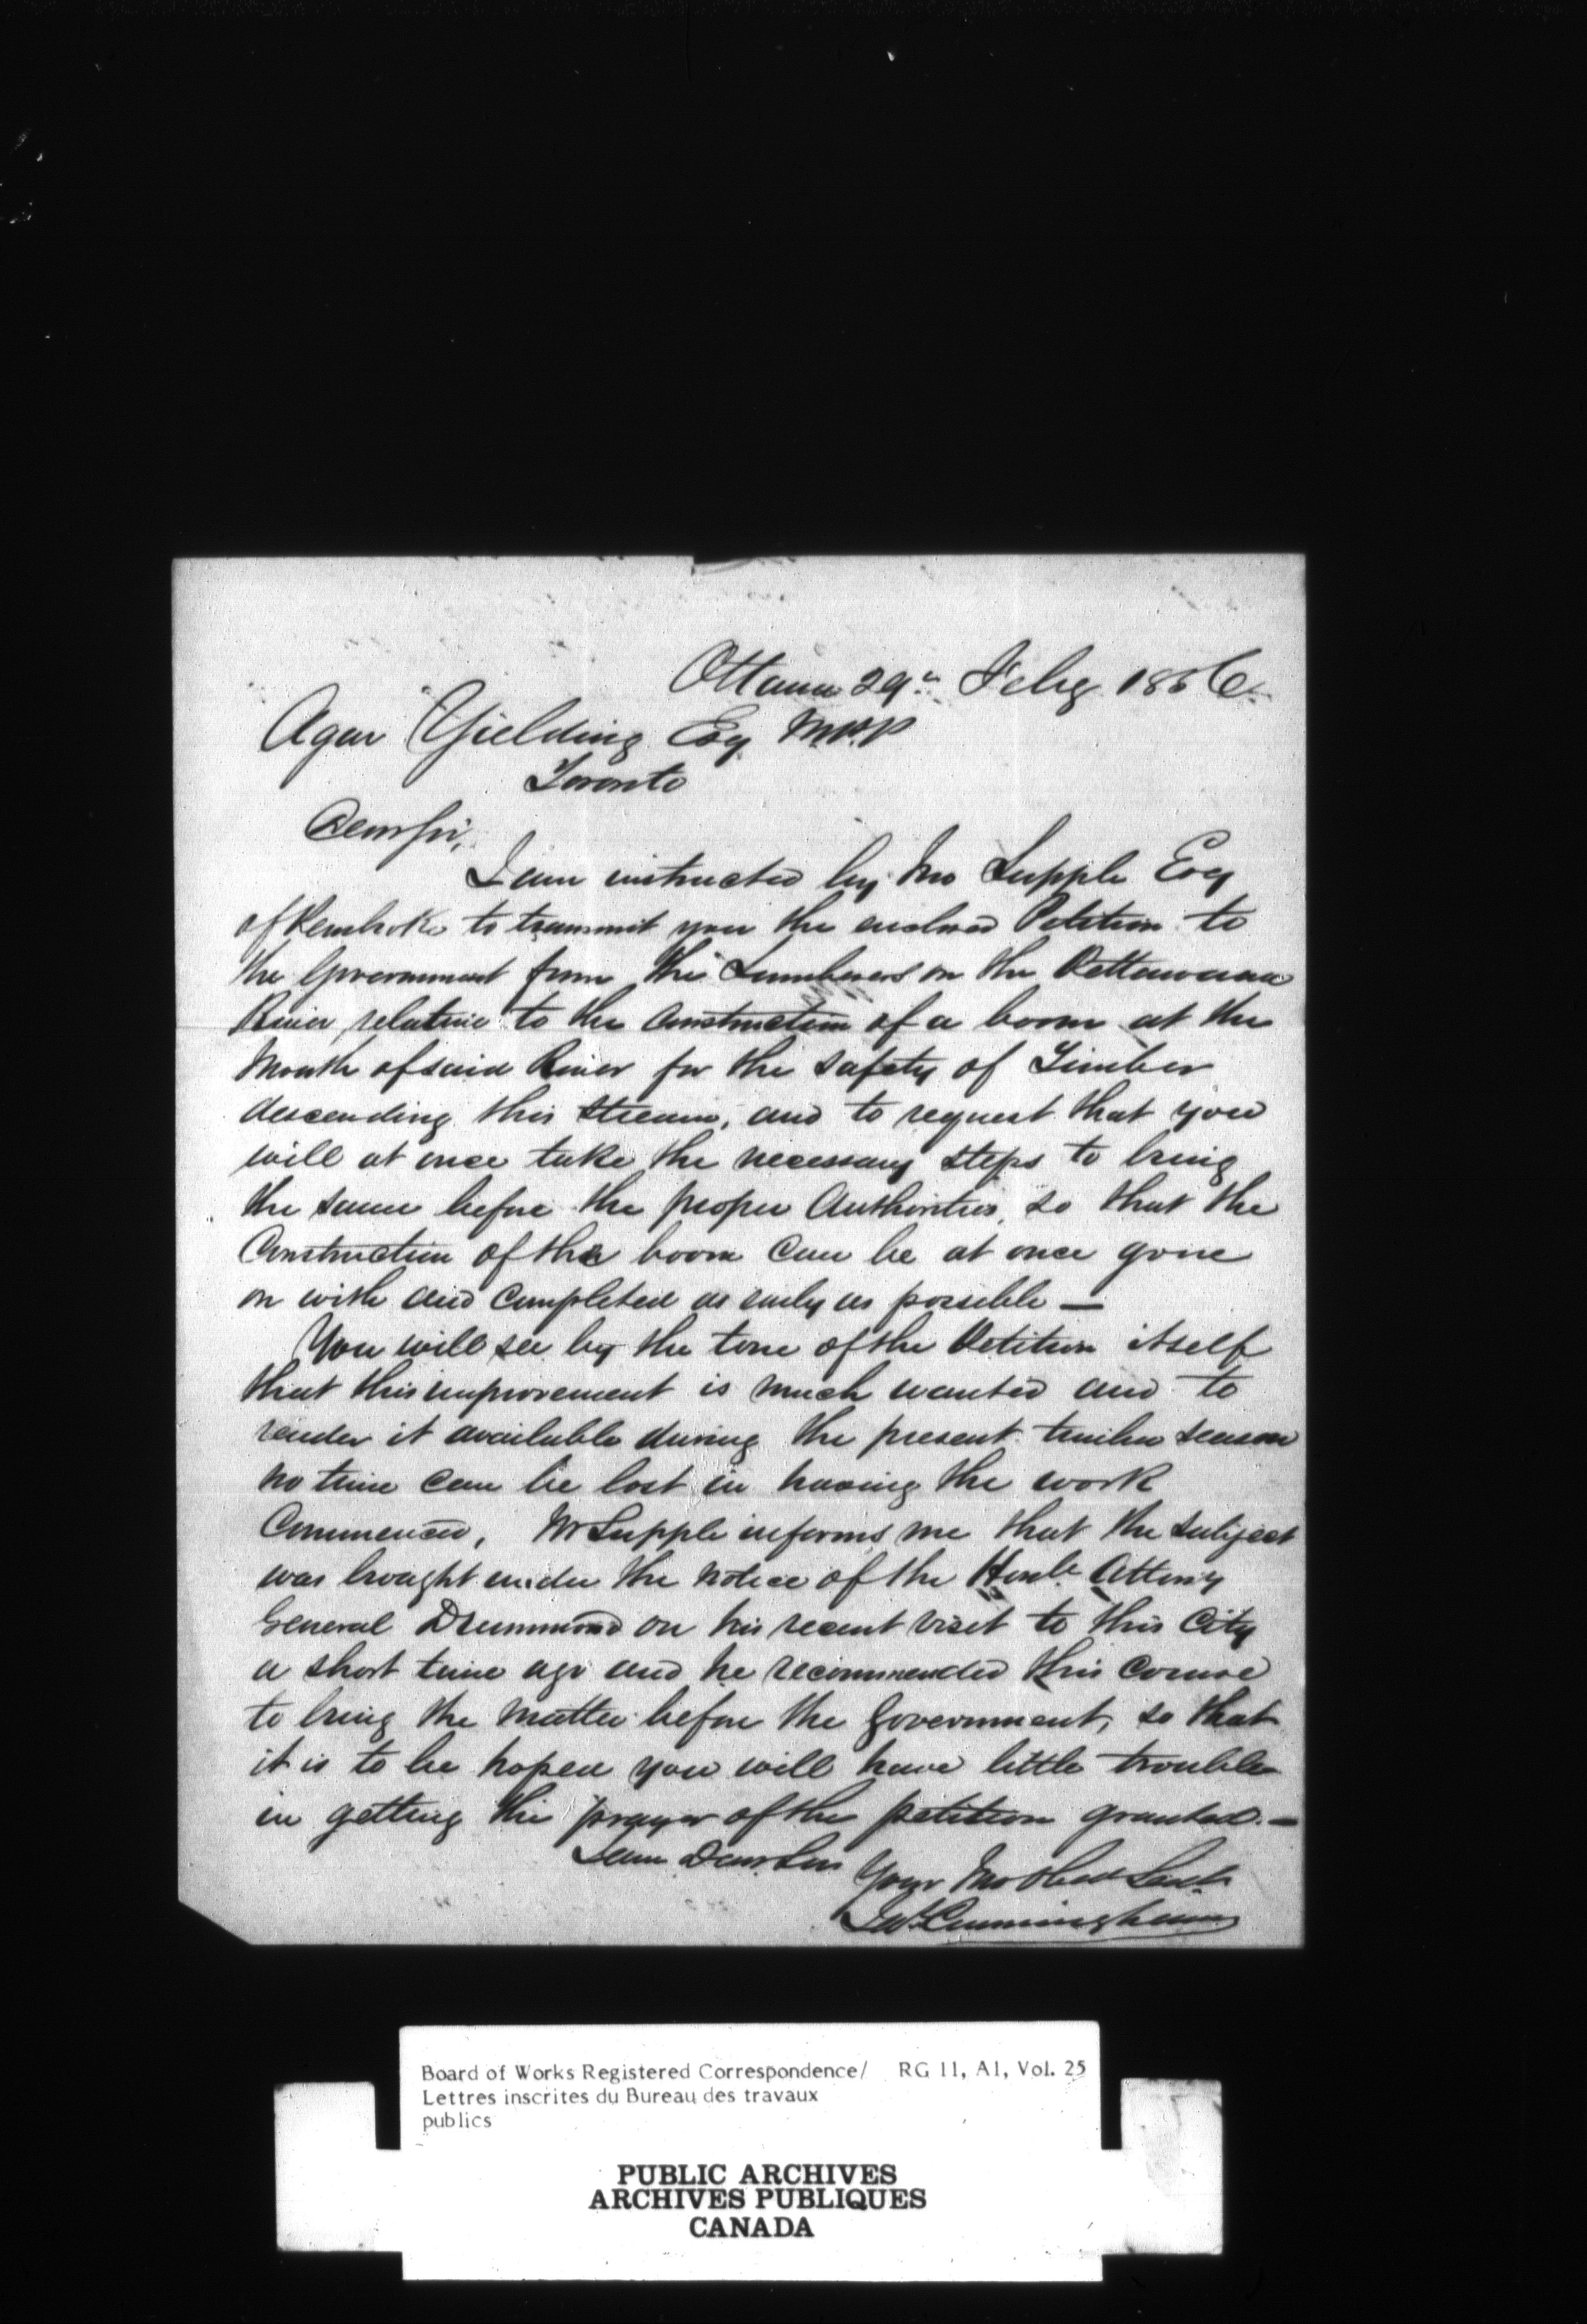 Ottawa 29th Feby 1856
Agar Yielding Esq M.P.P
Toronto
Dear Sir,
I am instructed by Jno Supple Esq
of Pembroke to transmit you the enclosed Petition to
the Government from the Lumberers on the Pettawawa
River relative to the Construction of a boom at the
Mouth of said River for the safety of Timber
descending this Stream, and to request that you
will at once take the necessary steps to bring
the same before the proper Authorities, so that the
Construction of the boom can be at once gone
on with and Completed as early as possible —
You will see by the tone of the Petition itself
that this improvement is much wanted and to
render it available during the present timber season
no time can be lost in having the work
Commenced, Mr Supple informs me that the subject
was brought under the notice of the Honble Attorny
General Drummond on his recent visit to this City
a short time ago and he recommended this Course
to bring the Matter before the Government, so that
it is to be hoped you will have little trouble
in getting the prayer of the petition granted. —
I am Dear Sir
Your Mo Obedt Servt
Jas Cunningham
Board of Works Registered Correspondence/ RG 11, A1, Vol. 25
Lettres inscrites du Bureau des travaux
publics
PUBLIC ARCHIVES
ARCHIVES PUBLIQUES
CANADA